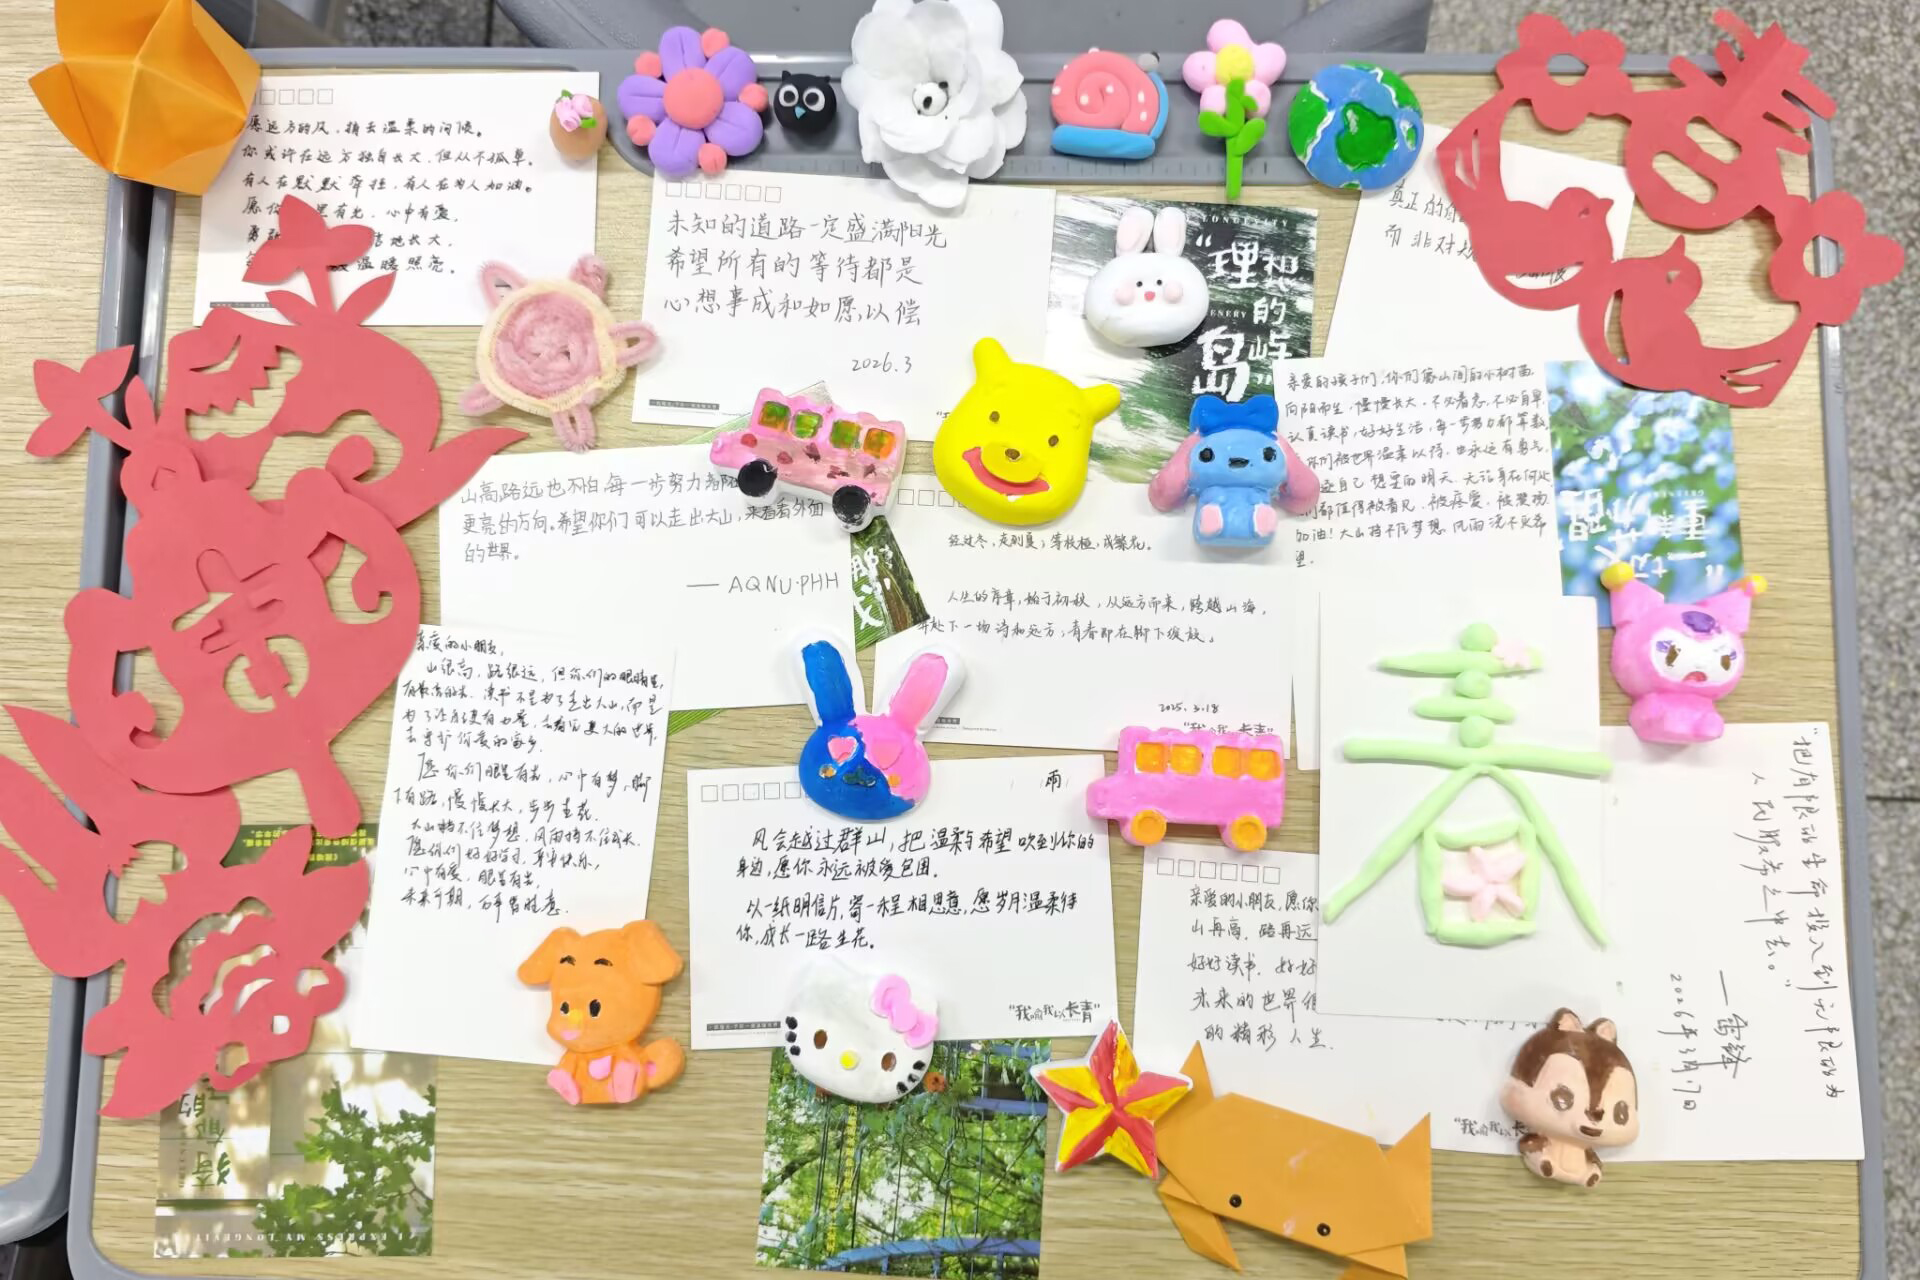 愿远方的风，捎去温柔的问候。
你或许在远方独自长大，但从不孤单。
有人在默默牵挂，有人在为人加油。
愿你 里有光，心中有爱，
勇敢 地长大，
温暖照亮。
未知的道路一定盛满阳光
希望所有的等待都是
心想事成和如愿以偿
2026.3
LONGEVITY
“理想的
岛屿
真正的
而非对
亲爱的孩子们，你们像山间的小树苗
向阳而生，慢慢长大，不必着急，不必自卑
认真读书，好好生活，每一步努力都算数
你们被世界温柔以待，也永远有勇气，
自己想要的明天，无论身在何处
们都值得被看见，被疼爱，被
加油！大山挡不住梦想，风雨浇不灭希
望。
山高路远也不怕，每一步努力都
更亮的方向。希望你们可以走出大山，来看看外面
的世界。
—— AQNU·PHH
经过冬，走到夏；等枝桠，成繁花。
人生的序章，始于初秋，从远方而来，跨越山海，
奔赴下一场诗和远方，青春即在脚下绽放。
2025.3.18
亲爱的小朋友，
山很高，路很远，但你们的眼睛里，
有最亮的光。读书不是为了走出大山，而是
为了让自己更有力量，去看见更大的世界，
去守护你爱的家乡。
愿你们眼里有光，心中有梦，脚
下有路，慢慢长大，步步生花。
大山挡不住梦想，风雨挡不住成长
愿你们好好学习，平安快乐，
心中有爱，眼里有光，
未来可期，万事皆胜意。
雨
风会越过群山，把温柔与希望吹到你的
身边，愿你永远被爱包围。
以一纸明信片，寄一程相思意，愿岁月温柔待
你，成长一路生花。
“我 我以长青”
亲爱的小朋友，愿你
山再高，路再远
好好读书，好好
未来的世界很
的精彩人生.
春
“把有限的生命投入到无限的为
人民服务之中去。”
——雷锋
2026年3月17日
I EXPRESS MY LONGEVITY